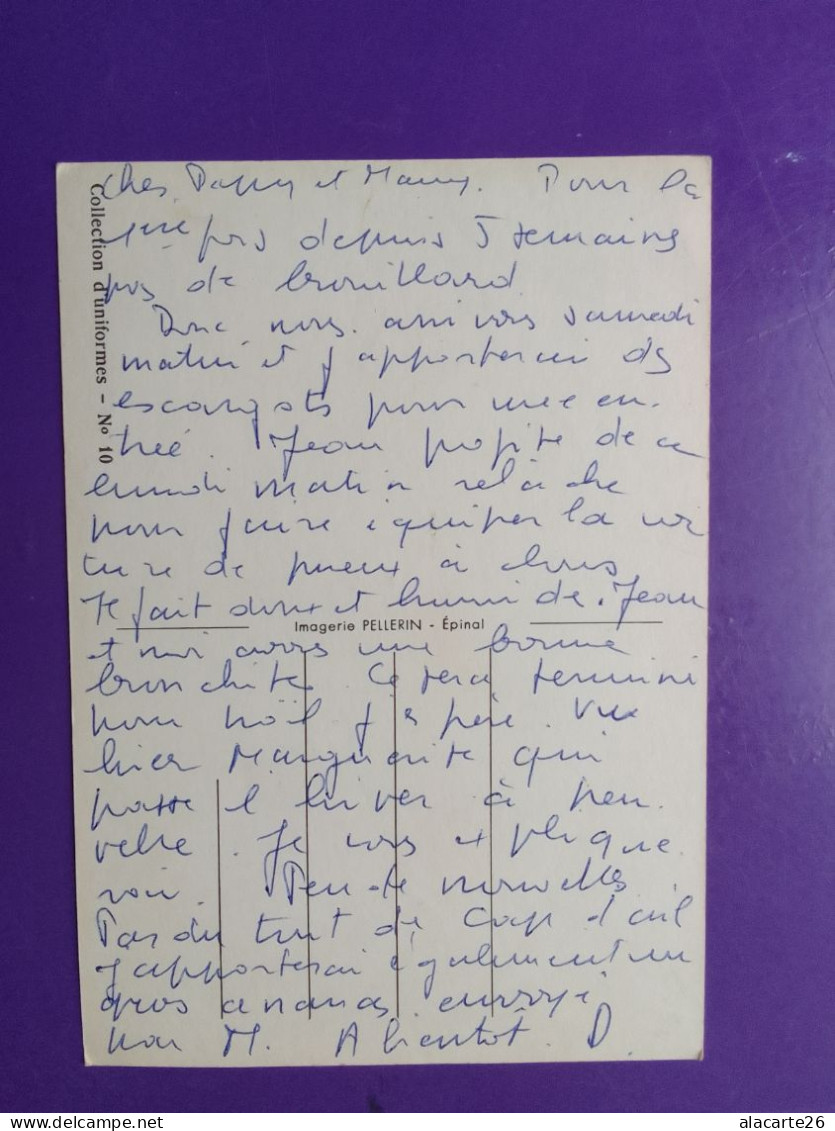 Cher Papy et Mamy. Pour la
1ère fois depuis 5 semaines
pas de brouillard
Donc nous arrivons samedi
matin et j'apporterai des
escargots pour une en-
trée. Jean profite de ce
lundi matin relâche
pour faire équiper la voi
ture de pneux à clous
Il fait doux et humide. Jean
et moi avons une bonne
bronchite. Ce sera terminé
pour Noël j'espère. Vu
hier Marguerite qui
passe l'hiver à
Je vous explique
rai. Peu de nouvelles
Pas du tout de Cap d'ail
J'apporterai également un
gros ananas envoyé
par M. A bientôt. D
Collection d'uniformes – No 10
Imagerie PELLERIN - Épinal
alacarte26